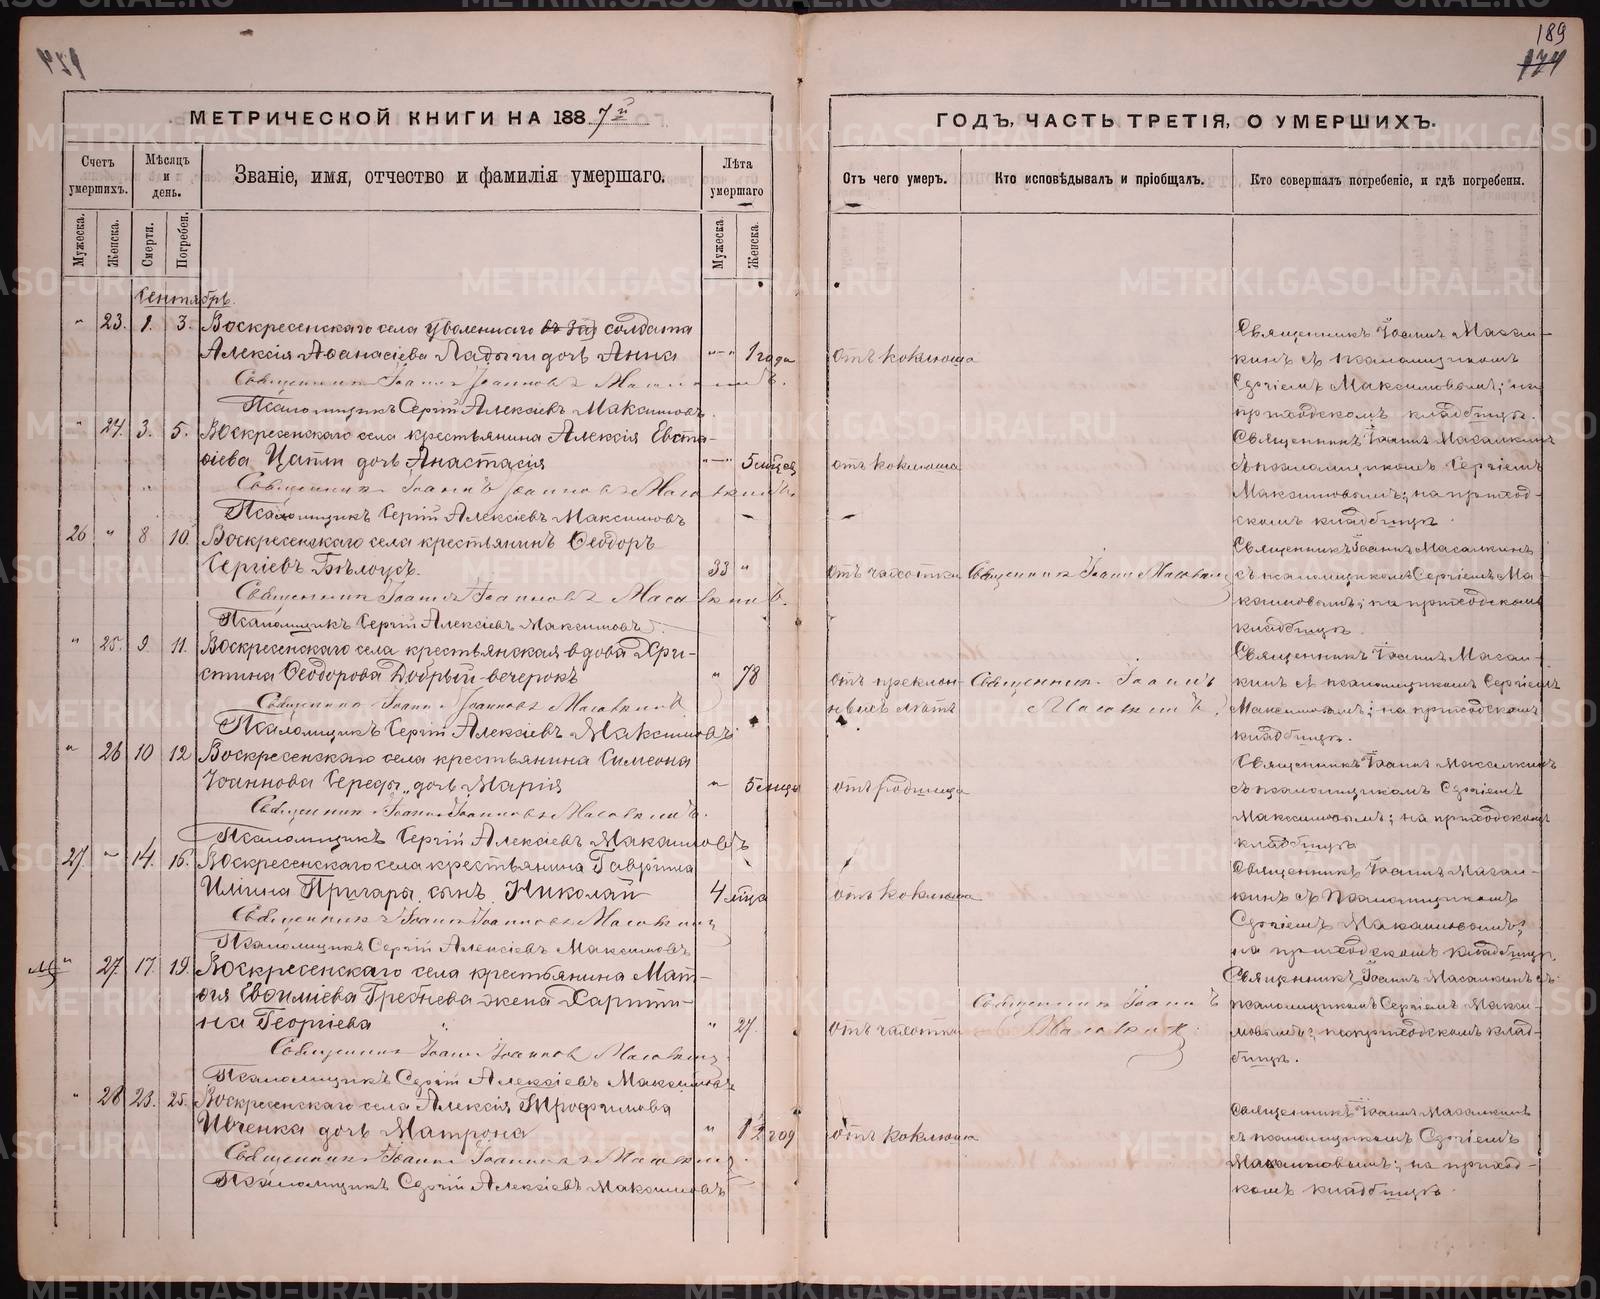 189
174
МЕТРИЧЕСКОЙ КНИГИ НА 1887й
ГОДЪ, ЧАСТЬ ТРЕТІЯ, О УМЕРШИХЪ.
Счетъ умершихъ.
Мѣсяцъ и день.
Званіе, имя, отчество и фамилія умершаго.
Лѣта умершаго
Отъ чего умеръ.
Кто исповѣдывалъ и пріобщалъ.
Кто совершалъ погребеніе, и гдѣ погребены.
Мужеска.
Женска.
Смерти.
Погребен.
Мужеска
Женска.
Сентябрь.
" 23. 1. 3. Воскресенскаго села уволеннаго солдата
Алексія Аѳанасіева Ладыги дочь Анна "—" 1 года
отъ коклюша
Священникъ Іоаннъ Іоанновъ Масалкинъ.
Псаломщикъ Сергій Алексіевъ Максимовъ.
Священникъ Іоаннъ Масал-
кинъ съ псаломщикомъ
Сергіемъ Максимовымъ; на
приходскомъ кладбищѣ.
" 24. 3. 5. Воскресенскаго села крестьянина Алексія Евста-
ѳіева Цапти дочь Анастасія "—" 5 мѣсяц
отъ коклюша
Священникъ Іоаннъ Іоанновъ Масалкинъ.
Псаломщикъ Сергій Алексіевъ Максимовъ
Священникъ Іоаннъ Масалкинъ
съ псаломщикомъ Сергіемъ
Максимовымъ; на приход-
скомъ кладбищѣ.
26 " 8 10. Воскресенскаго села крестьянинъ Ѳеодоръ
Сергіевъ Бѣлоусъ. 33 "
отъ чахотки
Священникъ Іоаннъ Масалкинъ
Священникъ Іоаннъ Іоанновъ Масалкинъ.
Псаломщикъ Сергій Алексіевъ Максимовъ.
Священникъ Іоаннъ Масалкинъ
съ псаломщикомъ Сергіемъ Ма-
ксимовымъ; на приходскомъ
кладбищѣ.
" 25. 9. 11. Воскресенскаго села крестьянская вдова Хри-
стина Ѳеодорова Добрый-вечерокъ " 78
отъ преклон-
ныхъ лѣтъ
Священникъ Іоаннъ
Масалкинъ.
Священникъ Іоаннъ Іоанновъ Масалкинъ
Псаломщикъ Сергій Алексіевъ Максимовъ
Священникъ Іоаннъ Масал-
кинъ съ псаломщикомъ Сергіемъ
Максимовымъ; на приходскомъ
кладбищѣ.
" 26 10 12 Воскресенскаго села крестьянина Симеона
Іоаннова Середы дочь Марія " 5 мѣсц
отъ родимца
Священникъ Іоаннъ Іоанновъ Масалкинъ.
Псаломщикъ Сергій Алексіевъ Максимовъ
Священникъ Іоаннъ Масалкинъ
съ псаломщикомъ Сергіемъ
Максимовымъ; на приходскомъ
кладбищѣ
27 — 14. 16. Воскресенскаго села крестьянина Гавріила
Иліина Пригара, сынъ Николай 4 мѣца
отъ коклюша
Священникъ Іоаннъ Іоанновъ Масалкинъ
Псаломщикъ Сергій Алексіевъ Максимовъ
Священникъ Іоаннъ Масал-
кинъ съ Псаломщикомъ
Сергіемъ Максимовымъ;
на приходскомъ кладбищѣ.
" 27. 17. 19. Воскресенскаго села крестьянина Мат-
ѳія Евѳиміева Гребнева жена Харити-
на Георгіева " 27.
отъ чахотки
Священникъ Іоаннъ
Масалкинъ.
Священникъ Іоаннъ Іоанновъ Масалкинъ.
Псаломщикъ Сергій Алексіевъ Максимовъ
Священникъ Іоаннъ Масалкинъ съ
псаломщикомъ Сергіемъ Макси-
мовымъ; на приходскомъ клад-
бищѣ.
" 28 23. 25. Воскресенскаго села Алексія Трофимова
Ивченка дочь Матрона " 1½ год
отъ коклюша
Священникъ Іоаннъ Іоанновъ Масалкинъ.
Псаломщикъ Сергій Алексіевъ Максимовъ
Священникъ Іоаннъ Масалкинъ
съ псаломщикомъ Сергіемъ
Максимовымъ; на приход-
комъ кладбищѣ.
METRIKI.GASO-URAL.RU